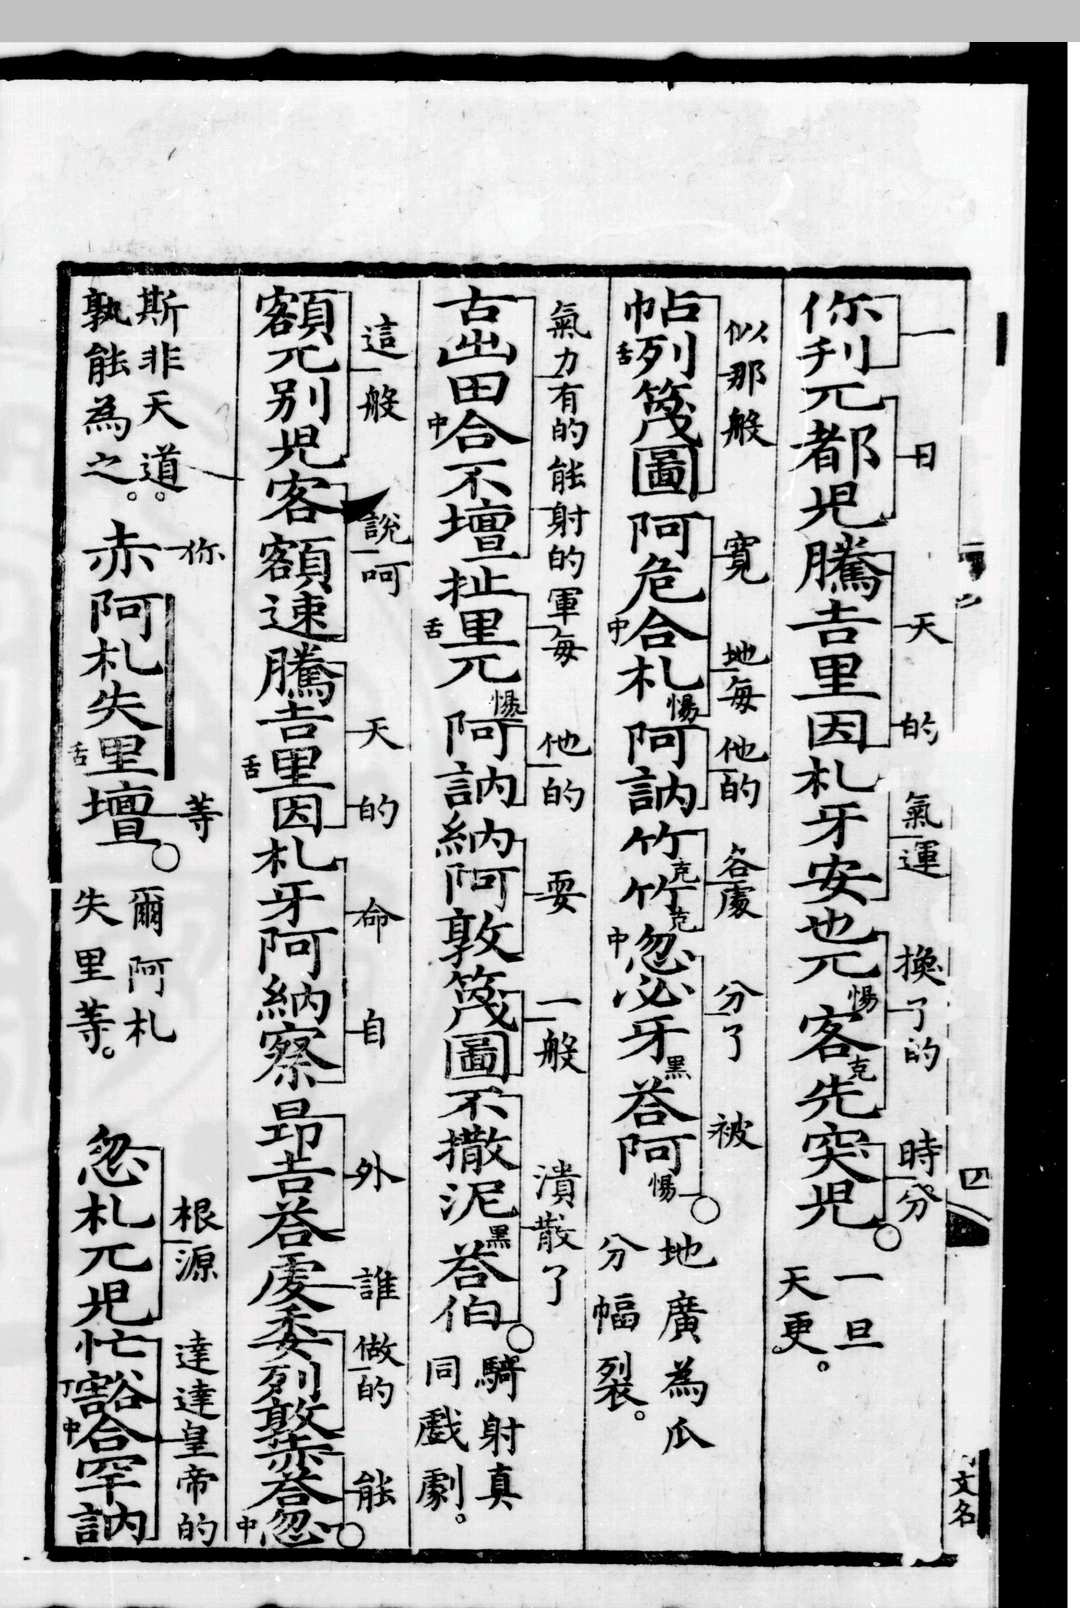 一 日 天 的 氣運 換了的 時分
你刋兀都兒騰吉里因札牙安也兀惕客克先突兒○
一旦
天更。
似那般 寬 地每 他的 各處 分了 被
帖舌列篾圖阿危中合札惕阿訥竹克竹克中忽必牙黑荅阿惕○
地廣為瓜
分幅裂。
氣力有的能射的軍每 他的 耍 一般 潰散了
古出田中合不壇扯舌里兀惕阿訥納阿敦篾圖不撒泥黑荅伯○
騎射真
同戲劇。
這般 說呵 天 的 命 自 外 誰 做的 能
額兀別兒客額速騰吉舌里因札牙阿納察昂吉荅處委列敦赤荅中忽○
斯非天道。
孰能為之。
你 等
赤阿札失舌里壇○
爾阿札
失里等。
根源 達達皇帝的
忽札兀兒忙丁豁中合罕訥
四
文名